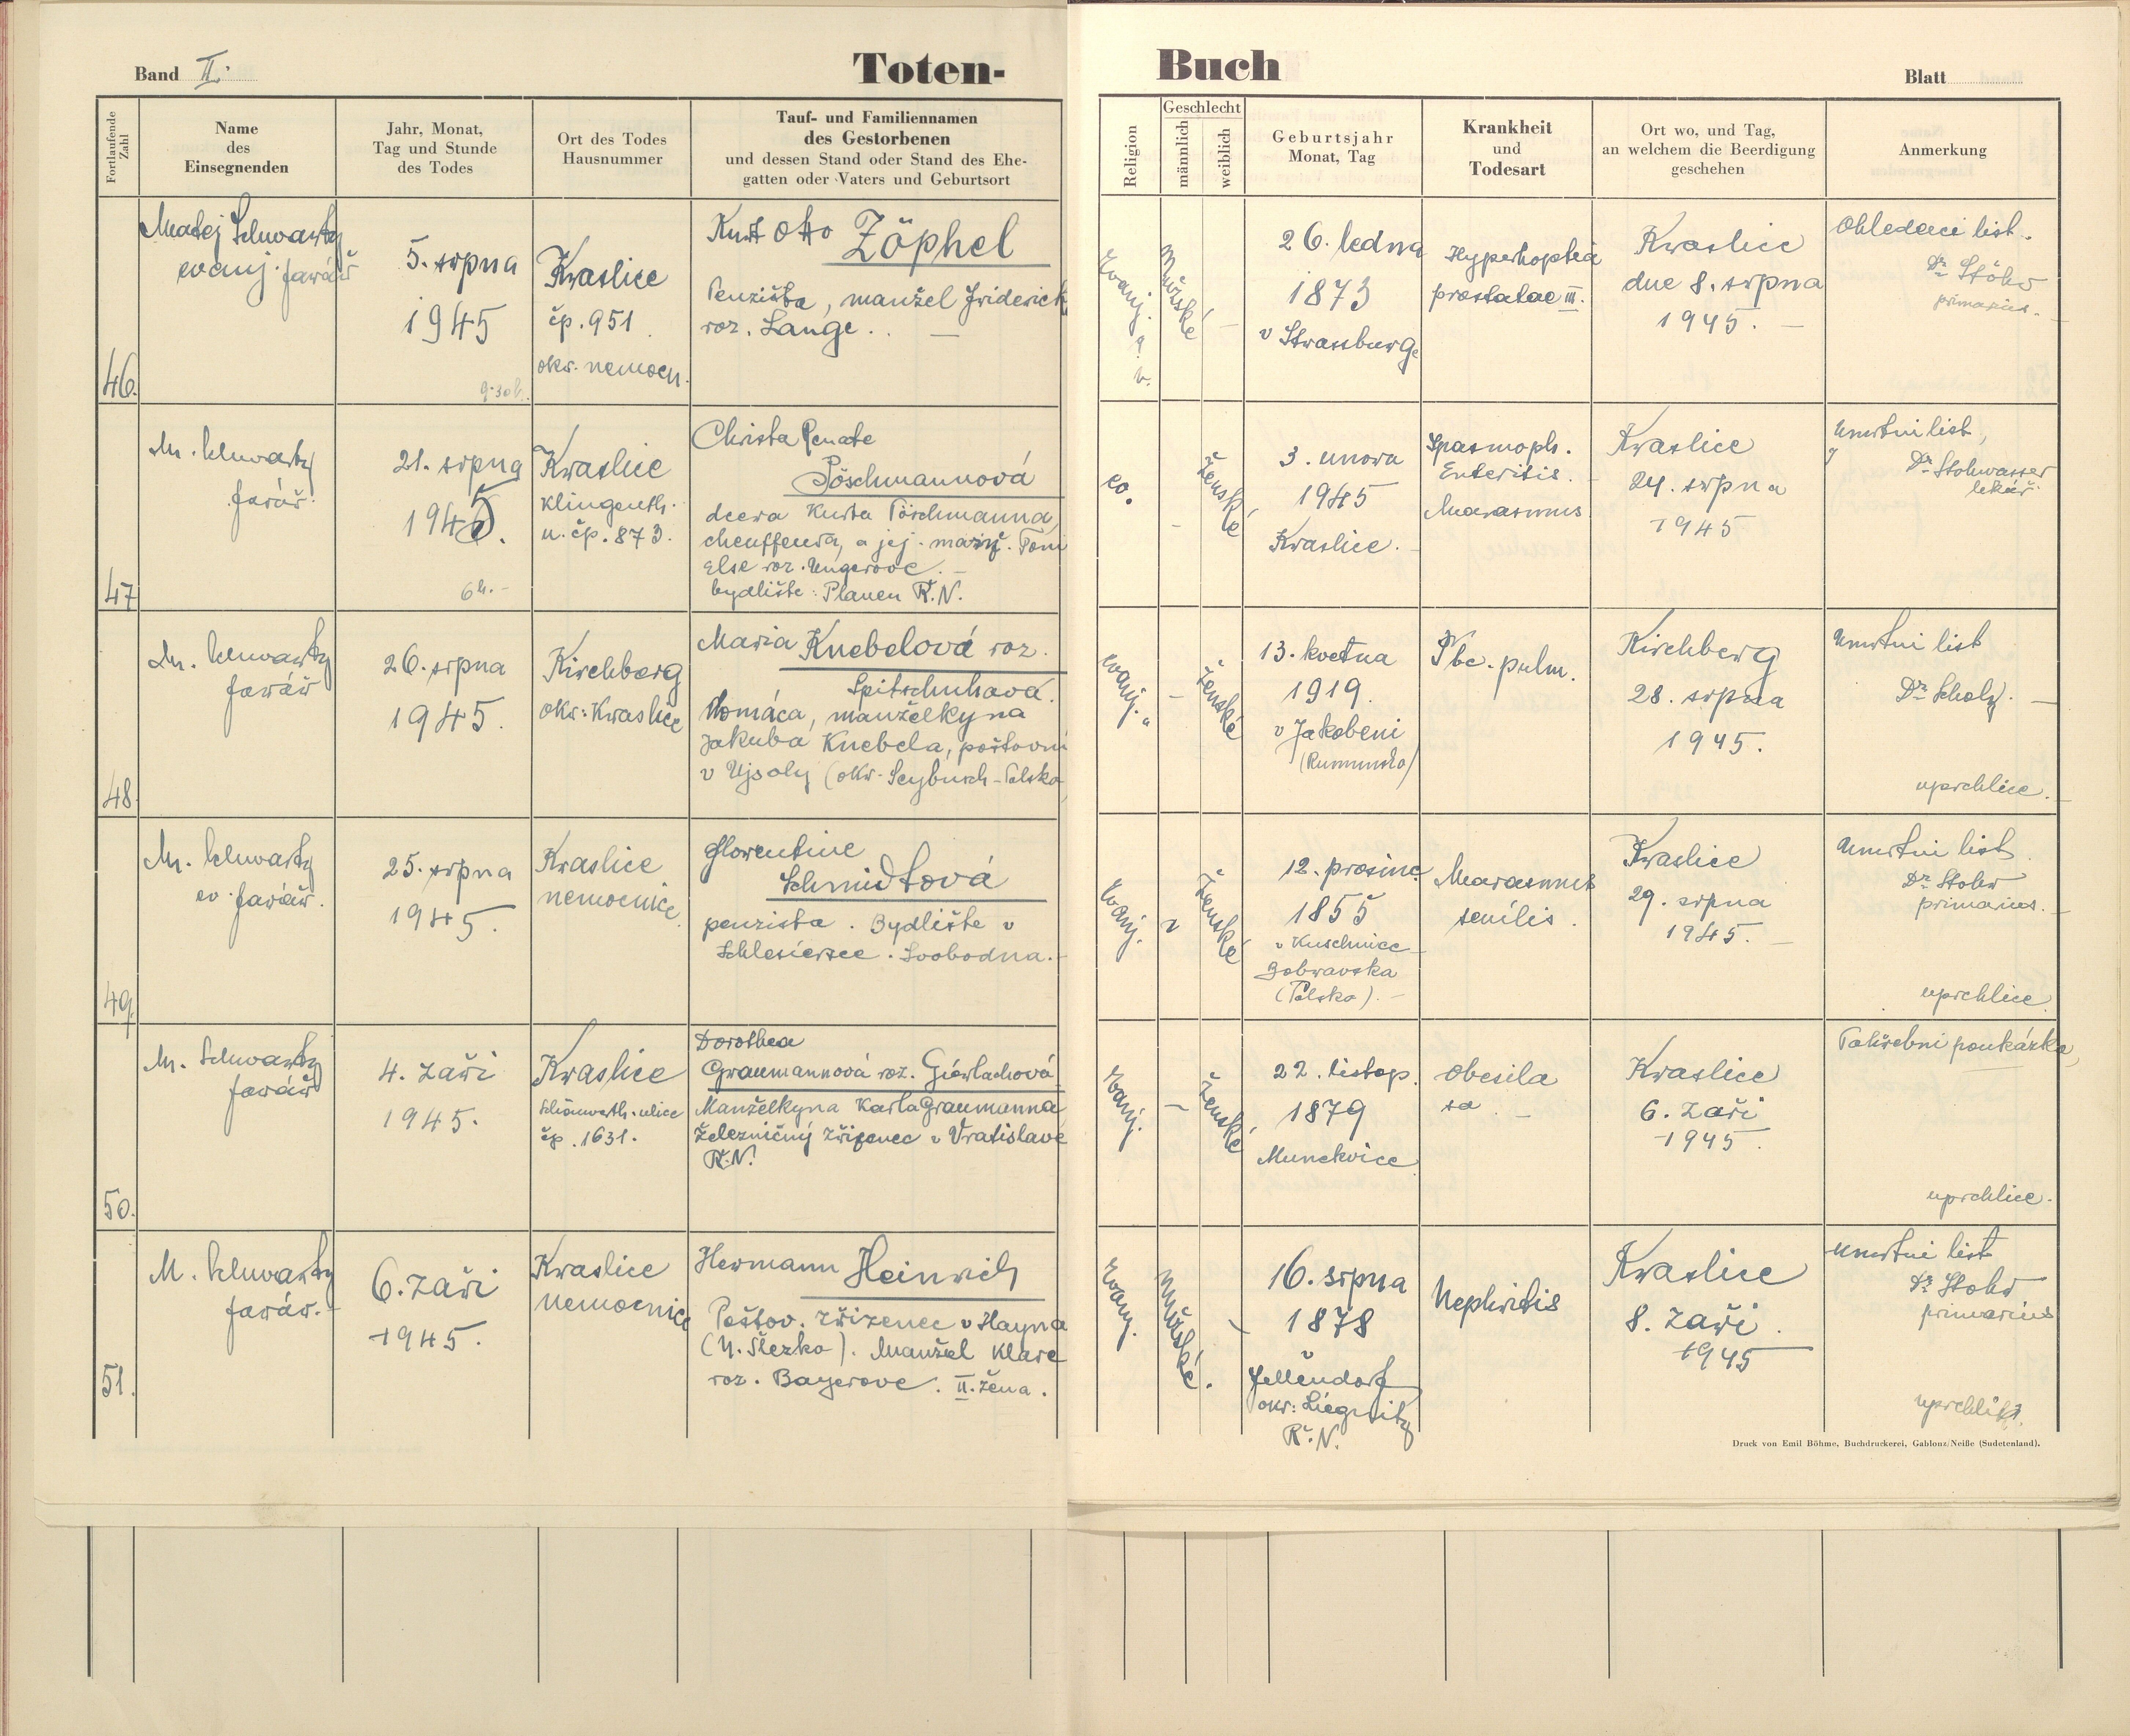 Band II.
Toten-
Buch
Blatt
Fortlaufende
Zahl
Name
des
Einsegnenden
Jahr, Monat,
Tag und Stunde
des Todes
Ort des Todes
Hausnummer
Tauf- und Familiennamen
des Gestorbenen
und dessen Stand oder Stand des Ehe-
gatten oder Vaters und Geburtsort
Religion
Geschlecht
männlich
weiblich
Geburtsjahr
Monat, Tag
Krankheit
und
Todesart
Ort wo, und Tag,
an welchem die Beerdigung
geschehen
Anmerkung
46.
Matej Schwartz
evanj. farář
5. srpna
1945
9·30 h.
Kraslice
čp. 951
okr. nemocn.
Kurt Otto Zöphel
Penzista, manžel Friderick
roz. Lange. . —
Evanj.
a.
v.
Mužské
—
26. ledna
1873
v Strassburge
Hyperhoptia
prostatae III.
Kraslice
dne 8. srpna
1945. —
Ohledací list.
Dr Stöhr
primarius. —
47
M. Schwartz
farář.
21. srpna
1945.
6 h. —
Kraslice
Klingenth.
u. čp. 873.
Christa Renate
Pöschmannová
dcera Kurta Pöschmanna,
cheuffeura, a jej. manž. Toni
Else roz. Ungerove. —
bydliště: Plauen Ř.N.
ev.
—
Ženské
3. unora
1945
Kraslice. —
Spasmoph.
Enteritis. —
Marasmus
Kraslice
24. srpna
1945
Umrtni list,
Dr Stohwasser
lekář.
48
M. Schwartz
farář
26. srpna
1945.
Kirchberg
okr: Kraslice
Maria Knebelová roz.
Spitschuhová.
domáca, manželkyna
Jakuba Knebela, poštovni
v Ujsoly (okr. Seybusch - Polsko
evanj. "
—
Ženské
13. kvetna
1919.
v Jakobeni
(Rumunsko)
Tbc. pulm.
Kirchberg
28. srpna
1945.
Umrtni list
Dr Scholz. —
uprchlice. —
49.
M. Schwartz
ev. farář.
25. srpna
1945.
Kraslice
nemocnice.
Florentine
Schmidtová
penzista. Bydliště v
Schlesiersee. Svobodna. —
Evanj.
Ženské
12. prosince
1855
v Kuschnice
Bobravska
(Polsko). —
Marasmus
senilis.
Kraslice
29. srpna
1945. —
Umrtni list
Dr Stohr
primarius. —
uprchlice
50.
M. Schwartz
farář
4. Zaři
1945.
Kraslice
Schönwerth. ulice
čp. 1631.
Dorothea
Graumannová roz. Gierlachová
Manželkyna Karla Graumanna
Železničný zřizenec v Vratislave
Ř.N.
Evanj.
—
Ženské
22. listop.
1879
Munckvice
Obesila
sa. —
Kraslice
6. Zaři
1945.
Pohřebni poukázka,
uprchlice.
51.
M. Schwartz
farář. —
6. Zaři
1945.
Kraslice
nemocnice
Hermann Heinrich
Poštov. Zřizenec v Hayna
(N. Slezko). Manžel Klare
roz. Bayerove. II. žena.
Evanj.
Mužské.
—
16. srpna
1878
Jellendorf
okr: Liegnitz
Ř.N.
Nephritis
Kraslice
8. Zaři.
1945
Umrtni list
Dr Stohr
primarius
uprchlik.
Druck von Emil Böhme, Buchdruckerei, Gablonz/Neiße (Sudetenland).